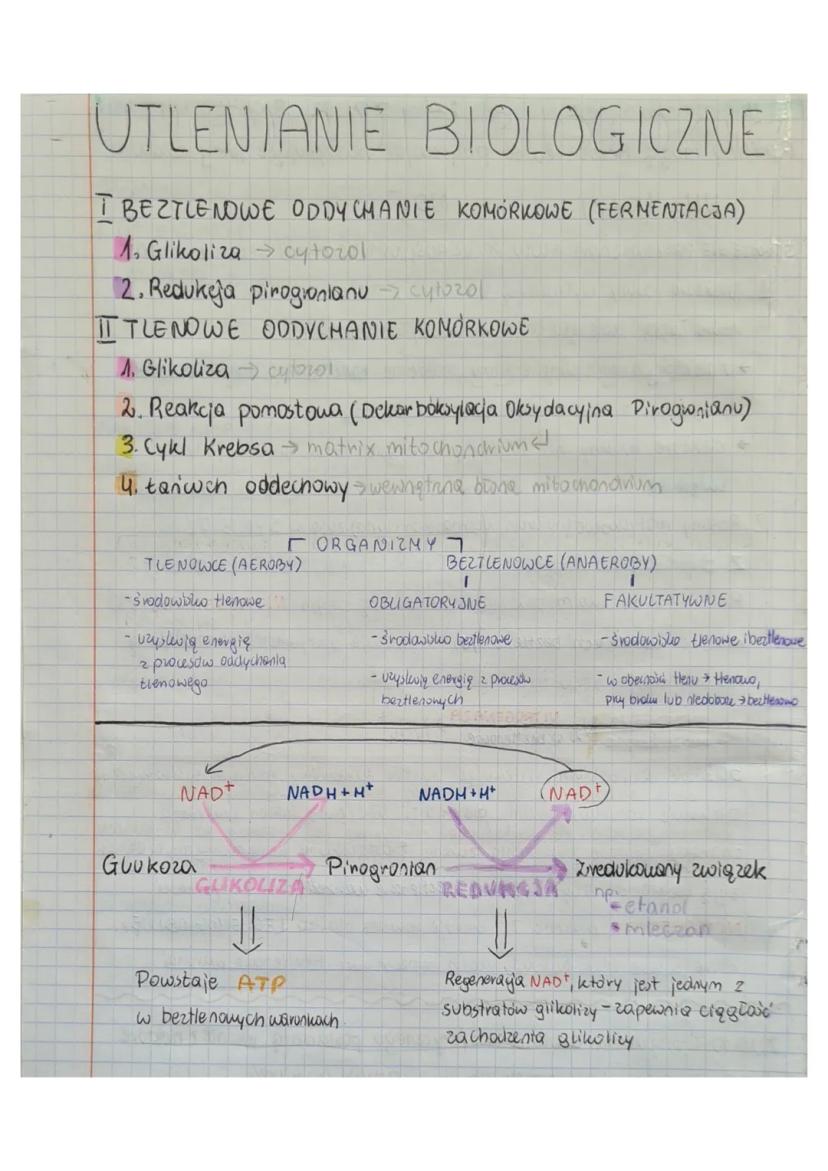 UTLENIANIE BIOLOGICZNE
I BEZTLENOWE ODDYCHANIE KOMÓRKOWE (FERMENTACJA)
1. Glikoliza → cytozol
2. Redukcja pirogronianu → cytozol
II TLENOWE ODDYCHANIE KOMÓRKOWE
1. Glikoliza → cytozol
2. Reakcja pomostowa (Dekarboksylacja Oksydacyjna Pirogronianu)
3. Cykl Krebsa → matrix mitochondrium ↵
4. Łańcuch oddechowy → wewnętrzna błona mitochondrium
ORGANIZMY
TLENOWCE (AEROBY) BEZTLENOWCE (ANAEROBY)
- środowisko tlenowe OBLIGATORYJNE FAKULTATYWNE
- uzyskują energię - środowisko beztlenowe - środowisko tlenowe i beztlenowe
z procesów oddychania
tlenowego - uzyskują energię z procesów - w obecności tlenu → tlenowo,
beztlenowych przy braku lub niedoborze → beztlenowo
NAD⁺ NADH+H⁺ NADH+H⁺ NAD⁺
Glukoza Pirogronian Zredukowany związek
GLIKOLIZA REDUKCJA np.
- etanol
- mleczan
Powstaje ATP Regeneracja NAD⁺, który jest jednym z
w beztlenowych warunkach substratów glikolizy - zapewnia ciągłość
zachodzenia glikolizy